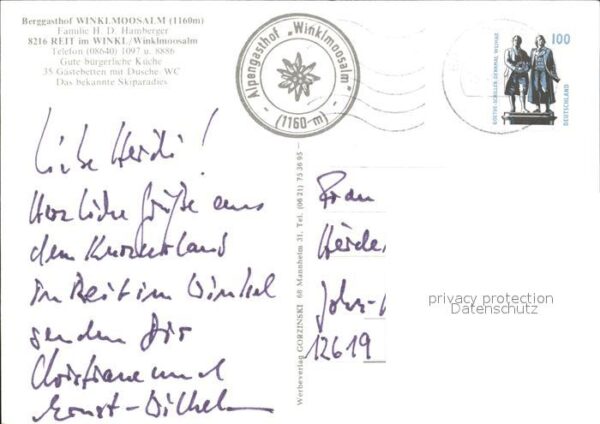 Berggasthof WINKLMOOSALM (1160m)
Familie H. D. Hamberger
8216 REIT im WINKL/Winklmoosalm
Telefon (08640) 1097 u. 8886
Gute bürgerliche Küche
35 Gästebetten mit Dusche/WC
Das bekannte Skiparadies
Alpengasthof „Winklmoosalm"
- (1160 m) -
100
GOETHE-SCHILLER-DENKMAL WEIMAR
DEUTSCHLAND
Liebe Heidi!
Herzliche Grüße aus
dem Kurzurlaub
in Reit im Winkel
senden Dir
Christiane und
Ernst-Wilhelm
Werbeverlag GORZINSKI 68 Mannheim 31, Tel. (06 21) 75 36 95
Frau
12619
privacy protection
Datenschutz